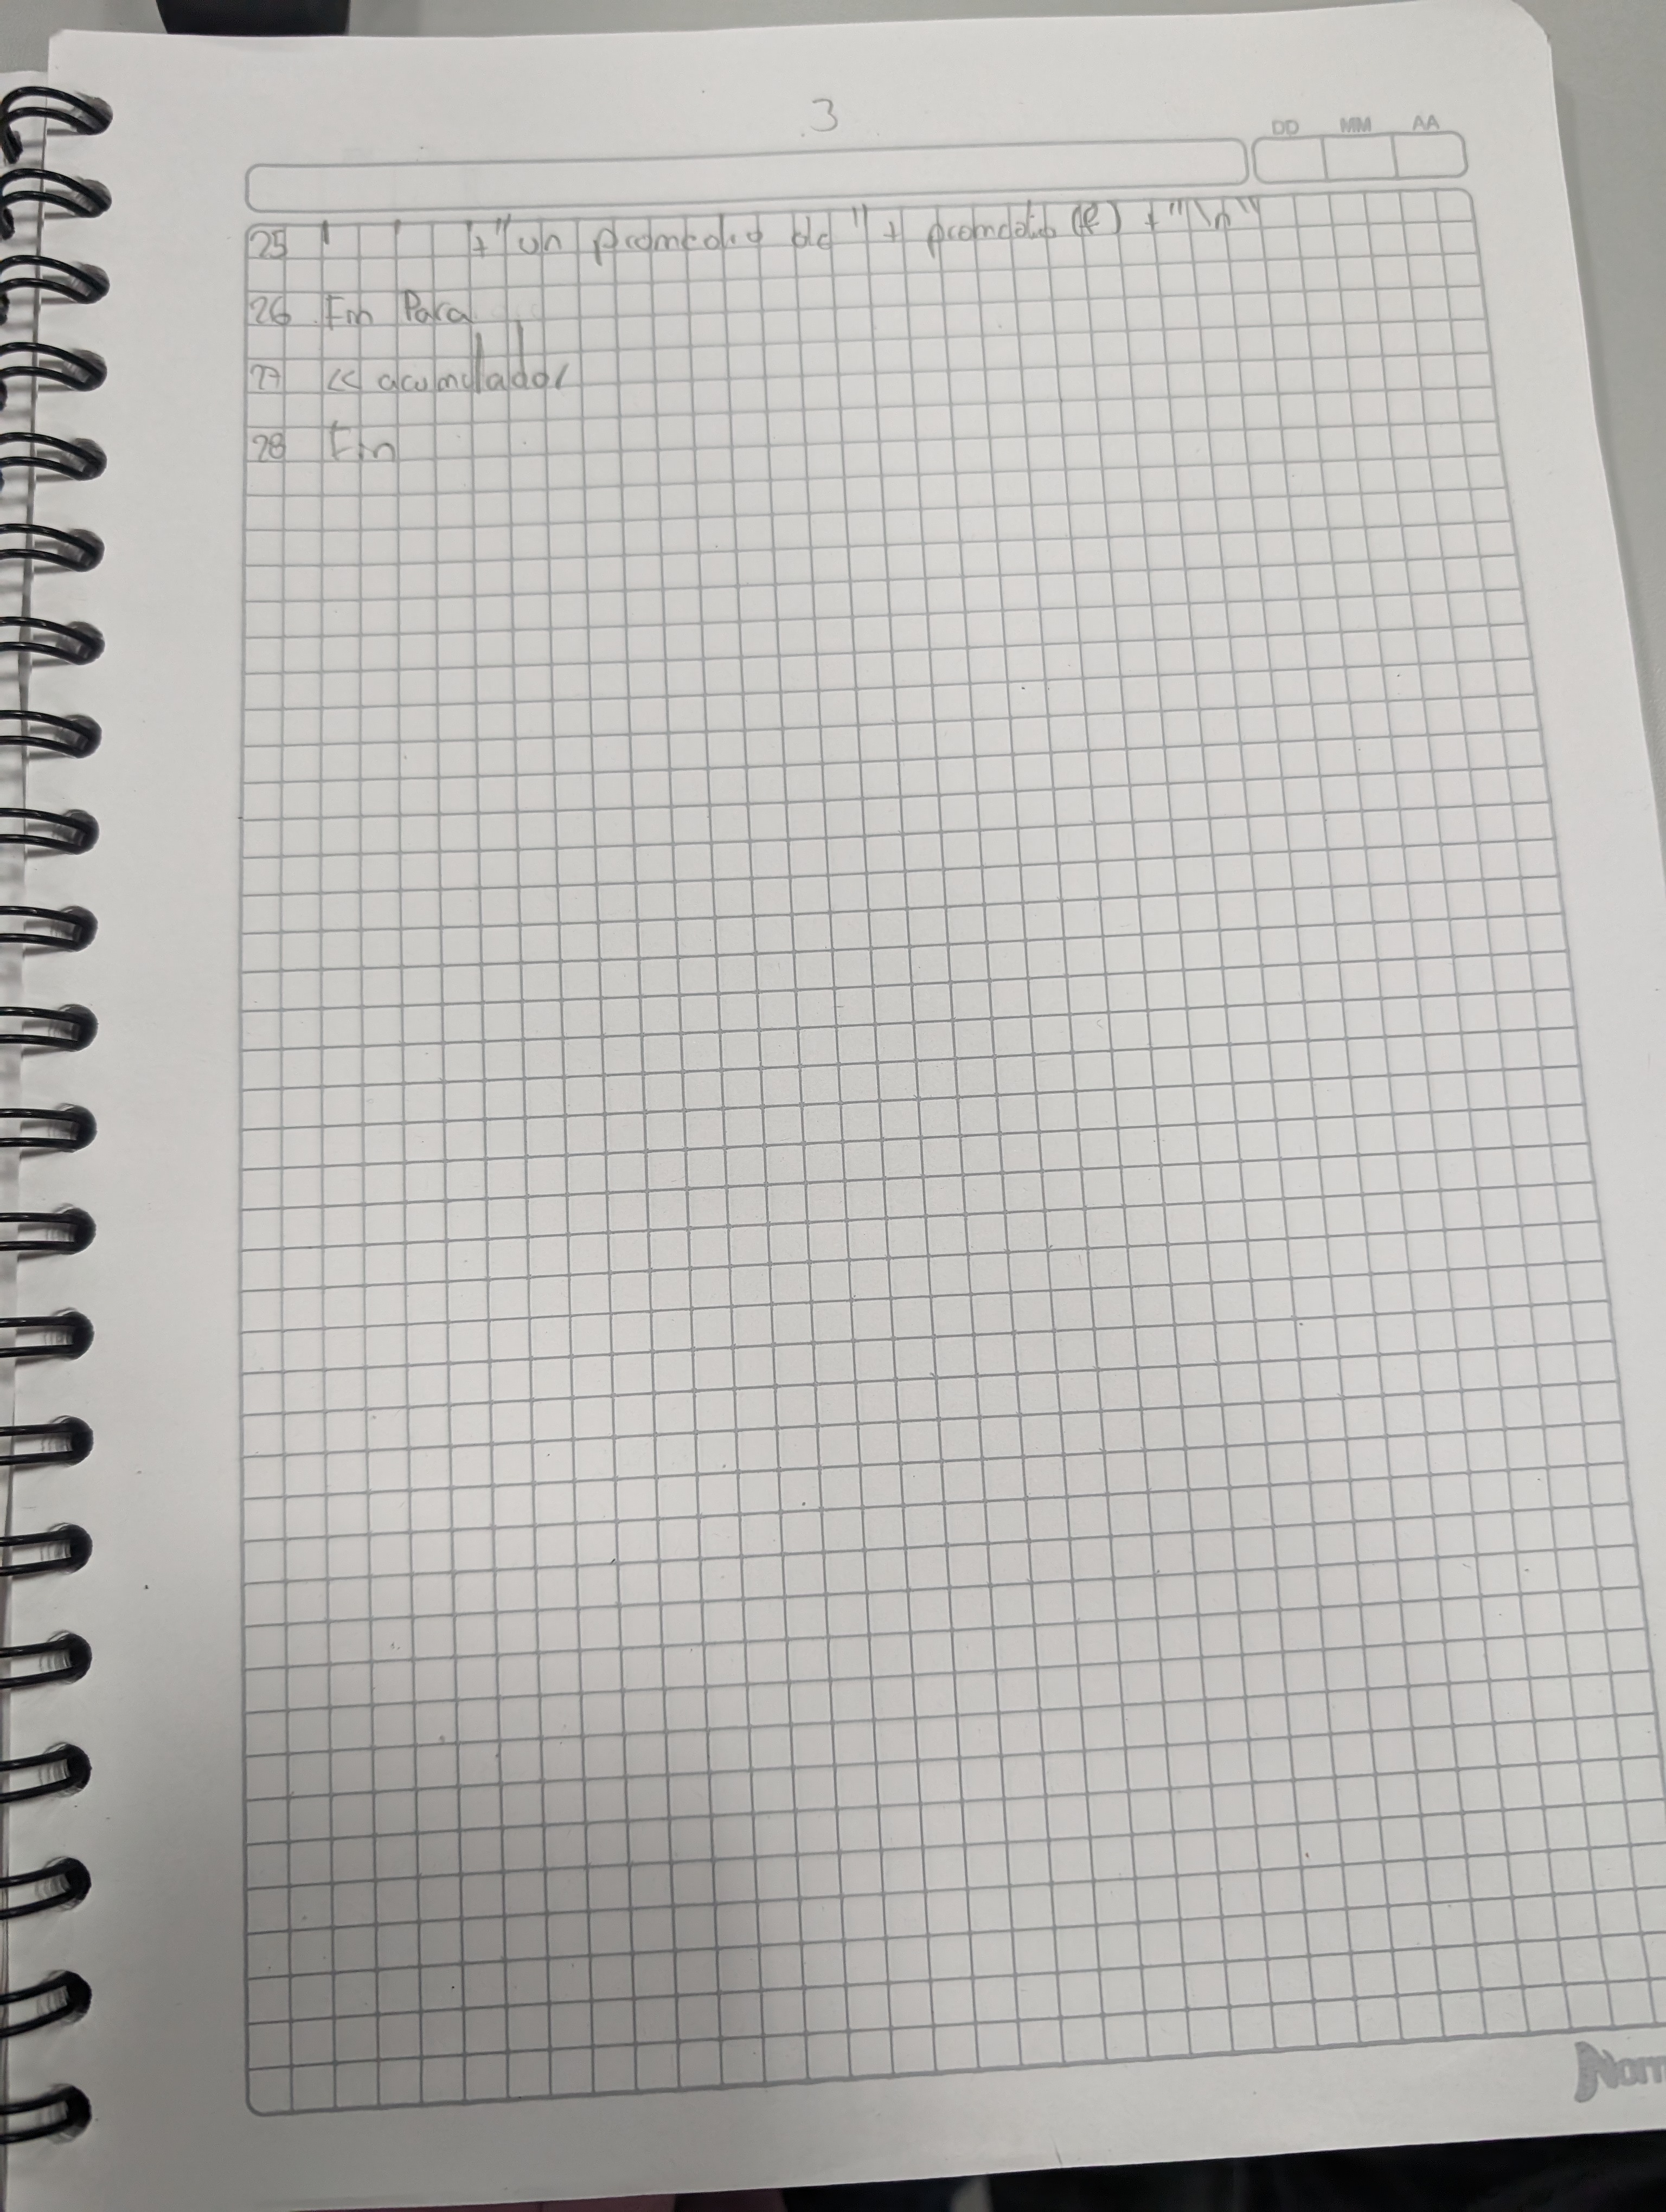 3
DD MM AA
25 +"un promedio de" + promedio (e) + "\n"
26 Fin Para
27 << acumulador
28 Fin
Norm